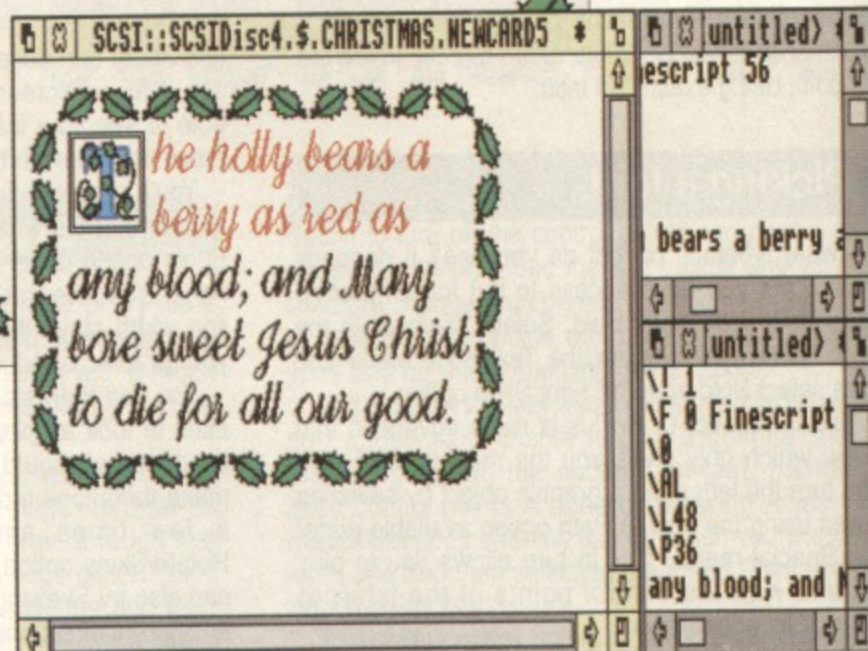 SCSI::SCSIDisc4.$.CHRISTMAS.NEWCARD5 *
The holly bears a
berry as red as
any blood; and Mary
bore sweet Jesus Christ
to die for all our good.
untitled>
nescript 56
bears a berry
untitled>
\! 1
\F 0 Finescript
\0
\AL
\L48
\P36
any blood; and